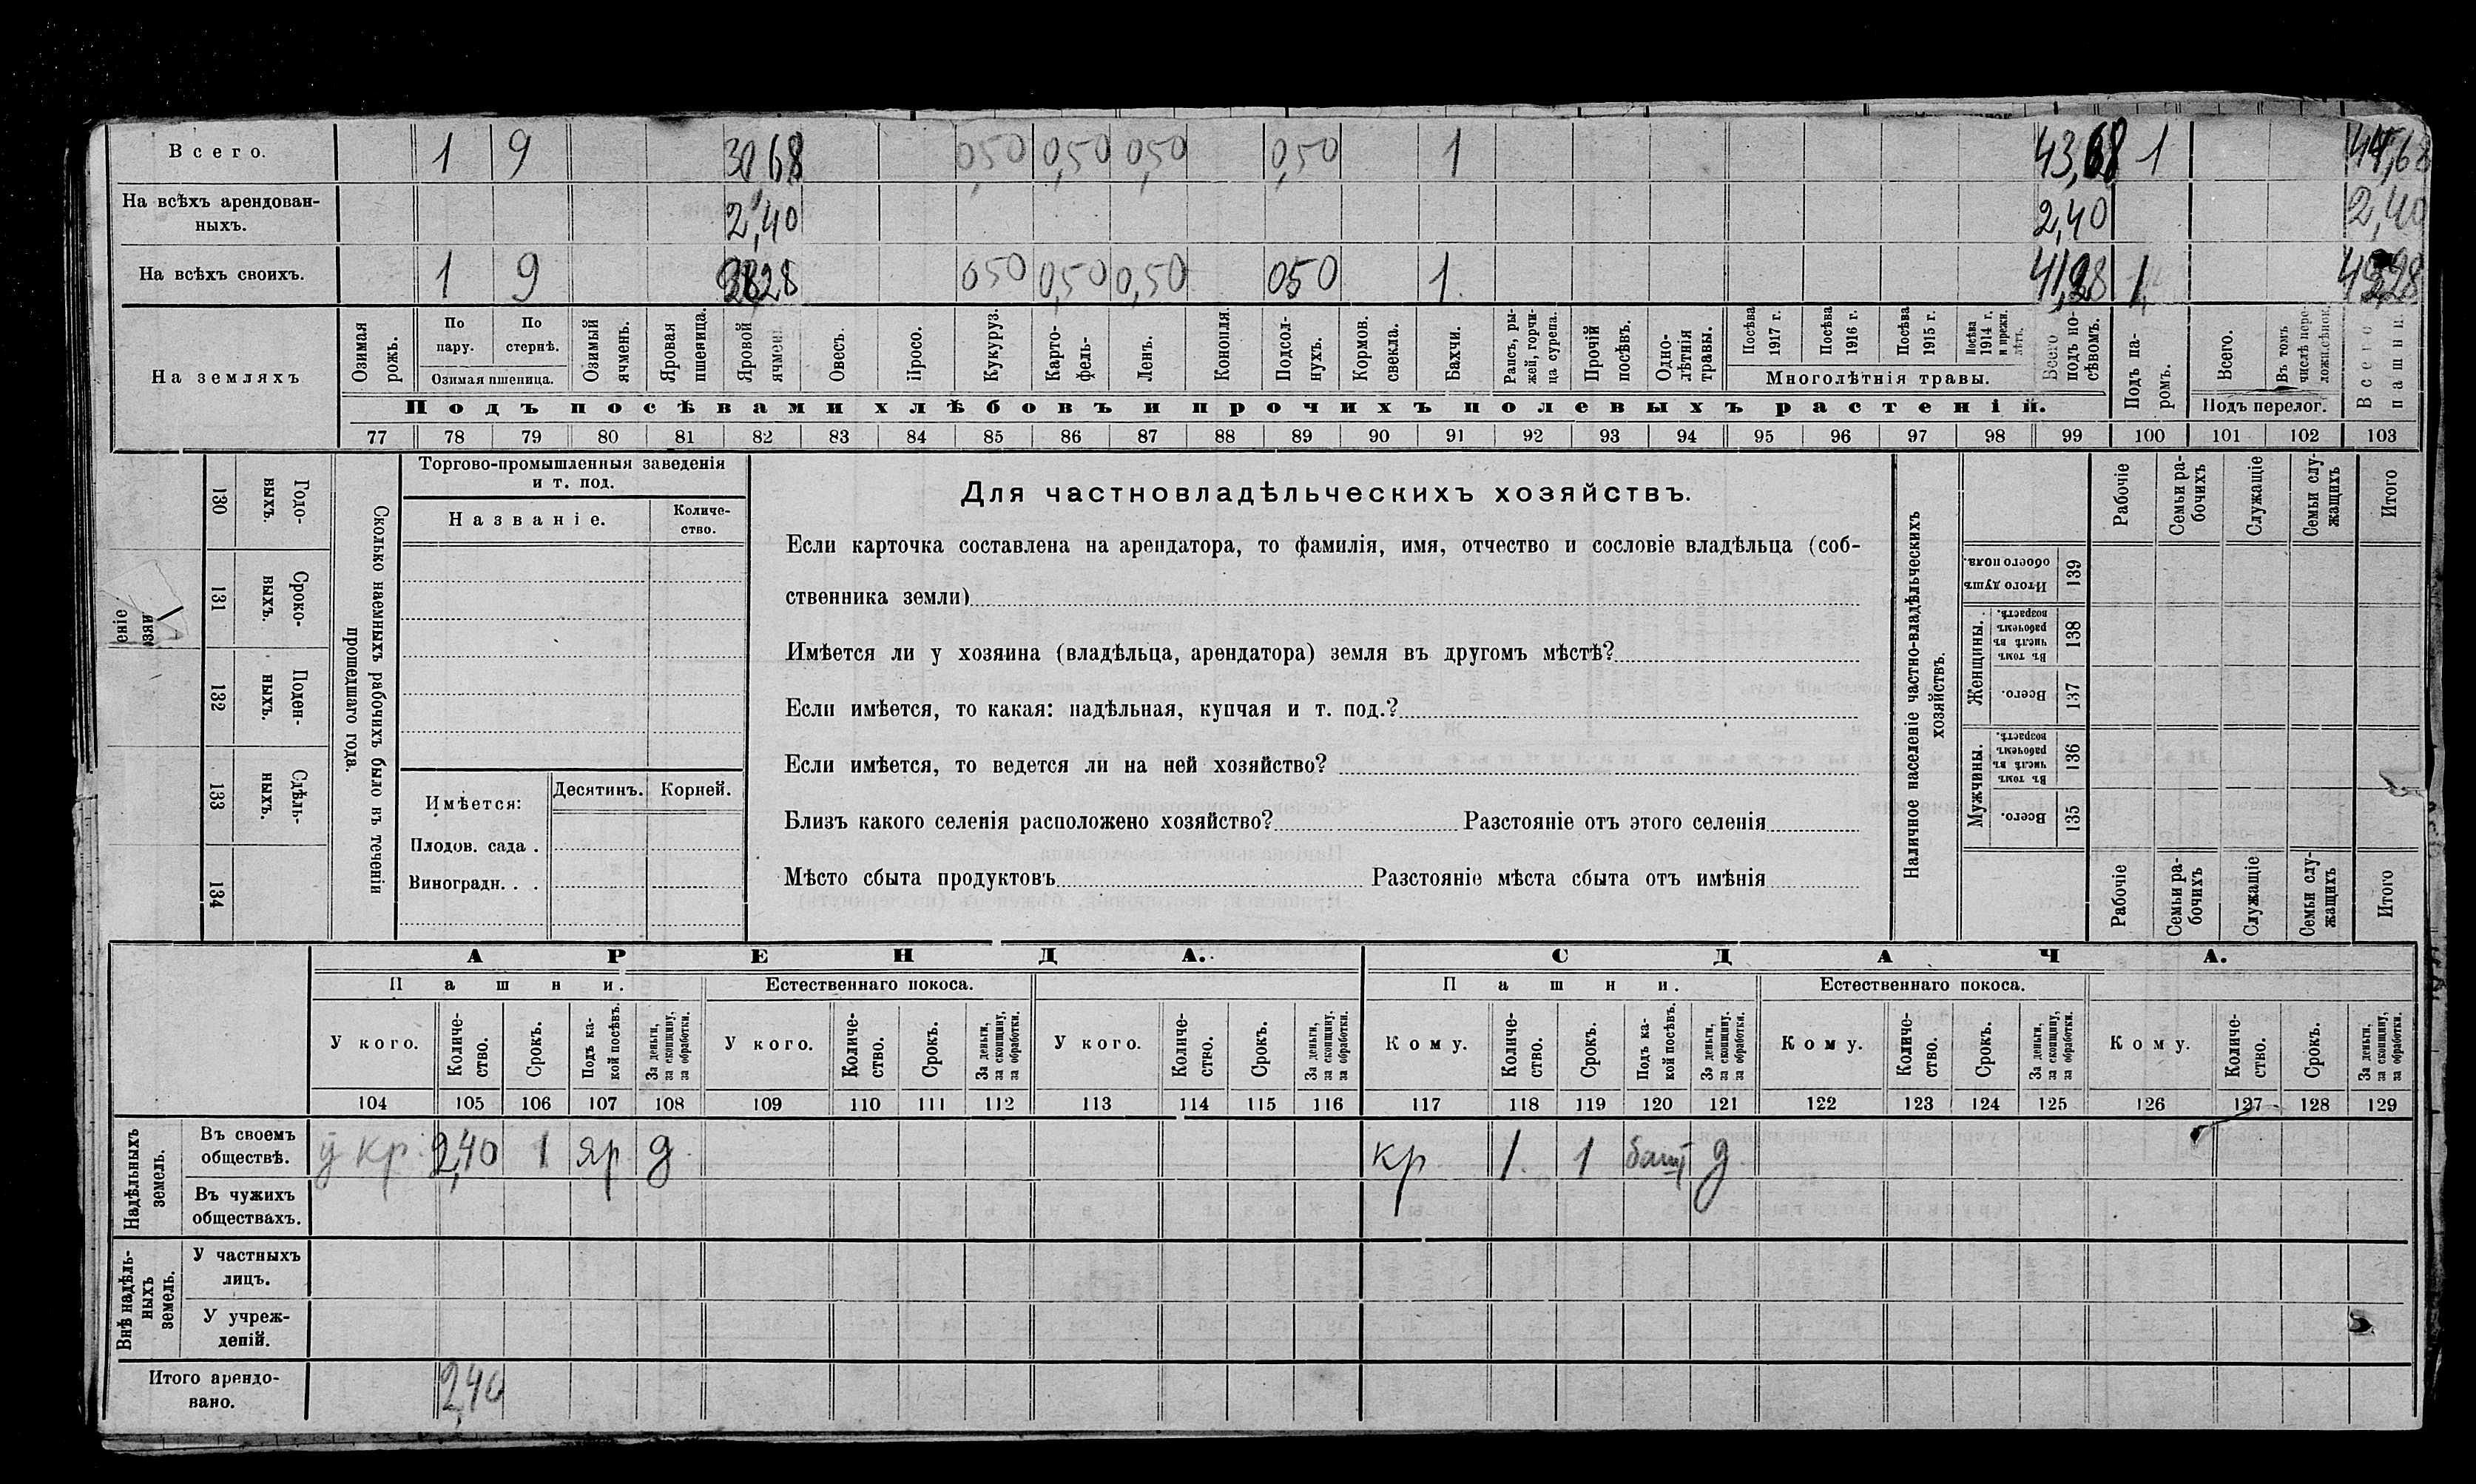 Всего. 1 9 30,68 0,50 0,50 0,50 0,50 1 43,68 1 44,68
На всѣхъ арендован-
ныхъ. 2,40 2,40 2,40
На всѣхъ своихъ. 1 9 28,28 0,50 0,50 0,50 0,50 1 41,28 1 42,28
На земляхъ
Озимая рожь.
По пару.
По стернѣ.
Озимая пшеница.
Озимый ячмень.
Яровая пшеница.
Яровой ячмен.
Овесъ.
Просо.
Кукуруз.
Карто-
фель-
Ленъ.
Конопля.
Подсол-
нухъ.
Кормов.
свекла.
Бахчи.
Рапсъ, ры-
жей, горчи-
ца сурепа.
Прочій
посѣвъ.
Одно-
лѣтнія
травы.
Посѣва
1917 г.
Посѣва
1916 г.
Посѣва
1915 г.
Посѣва
1914 г.
и прежн.
лѣтъ.
Многолѣтнія травы.
Всего
подъ по-
сѣвомъ.
Подъ па-
ромъ.
Всего.
Въ томъ
числѣ пере-
ложисѣнок.
Подъ перелог.
Всего
пашни.
Подъ посѣвами хлѣбовъ и прочихъ полевыхъ растеній.
77 78 79 80 81 82 83 84 85 86 87 88 89 90 91 92 93 94 95 96 97 98 99 100 101 102 103
Сколько наемныхъ рабочихъ было въ теченіи
прошедшаго года.
Годо-
выхъ.
130
Сроко-
выхъ.
131
Поден-
ныхъ.
132
Сдѣль-
ныхъ.
133
134
еніе
озяи
Торгово-промышленныя заведенія
и т. под.
Названіе.
Количе-
ство.
Имѣется:
Десятинъ. Корней.
Плодов. сада .
Виноградн. . .
Для частновладѣльческихъ хозяйствъ.
Если карточка составлена на арендатора, то фамилія, имя, отчество и сословіе владѣльца (соб-
ственника земли)
Имѣется ли у хозяина (владѣльца, арендатора) земля въ другомъ мѣстѣ?
Если имѣется, то какая: надѣльная, купчая и т. под.?
Если имѣется, то ведется ли на ней хозяйство?
Близъ какого селенія расположено хозяйство? Разстояніе отъ этого селенія
Мѣсто сбыта продуктовъ Разстояніе мѣста сбыта отъ имѣнія
Наличное населеніе частно-владѣльческихъ
хозяйствъ.
Рабочіе
Семьи ра-
бочихъ
Служащіе
Семьи слу-
жащихъ
Итого
Итого душъ
обоего пола.
139
Женщины.
Въ томъ
числѣ въ
рабочемъ
возрастѣ.
138
Всего.
137
Мужчины.
Въ томъ
числѣ въ
рабочемъ
возрастѣ.
136
Всего.
135
Рабочіе
Семьи ра-
бочихъ
Служащіе
Семьи слу-
жащихъ
Итого
АРЕНДА. СДАЧА.
Пашни. Естественнаго покоса. Пашни. Естественнаго покоса.
У кого.
Количе-
ство.
Срокъ.
Подъ ка-
кой посѣвъ.
За деньги,
за скопщину,
за обработки.
У кого.
Количе-
ство.
Срокъ.
За деньги,
за скопщину,
за обработки.
У кого.
Количе-
ство.
Срокъ.
За деньги,
за скопщину,
за обработки.
Кому.
Количе-
ство.
Срокъ.
Подъ ка-
кой посѣвъ.
За деньги,
за скопщину.
за обработки.
Кому.
Количе-
ство.
Срокъ.
За деньги,
за скопщину,
за обработки.
Кому.
Количе-
ство.
Срокъ.
За деньги,
за скопщину,
за обработки.
104 105 106 107 108 109 110 111 112 113 114 115 116 117 118 119 120 121 122 123 124 125 126 127 128 129
Надѣльныхъ
земель.
Въ своемъ
обществѣ. у кр. 2,40 1 яр д. кр 1. 1 башт д.
Въ чужихъ
обществахъ.
Внѣ надѣль-
ныхъ
земель.
У частныхъ
лицъ.
У учреж-
деній.
Итого арендо-
вано. 2,40